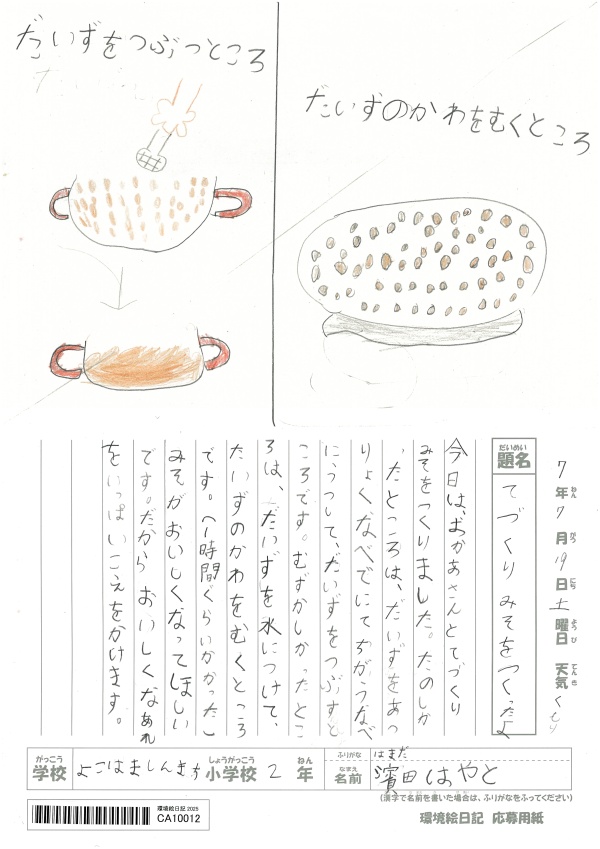 だいずをつぶつところ
だいずのかわをむくところ
7年7月19日土曜日 天気くもり
ねん がつ にち ようび てんき
だいめい
題名
てづくりみそをつくったよ
今日は、おかあさんとてづくり
みそをつくりました。たのしか
ったところは、だいずをあつ
りょくなべでにてちがうなべ
にうつして、だいずをつぶすと
ころです。むずかしかったとこ
ろは、だいずを水につけて、
だいずのかわをむくところ
です。1時間ぐらいかかったこ
みそがおいしくなってほしい
です。だからおいしくなあれ
をいっぱいこえをかけます。
がっこう
学校
しょうがっこう
小学校 2 ねん
年
ふりがな はまだ
なまえ
名前 濱田はやと
(漢字で名前を書いた場合は、ふりがなをふってください)
環境絵日記 2025
CA10012
環境絵日記 応募用紙